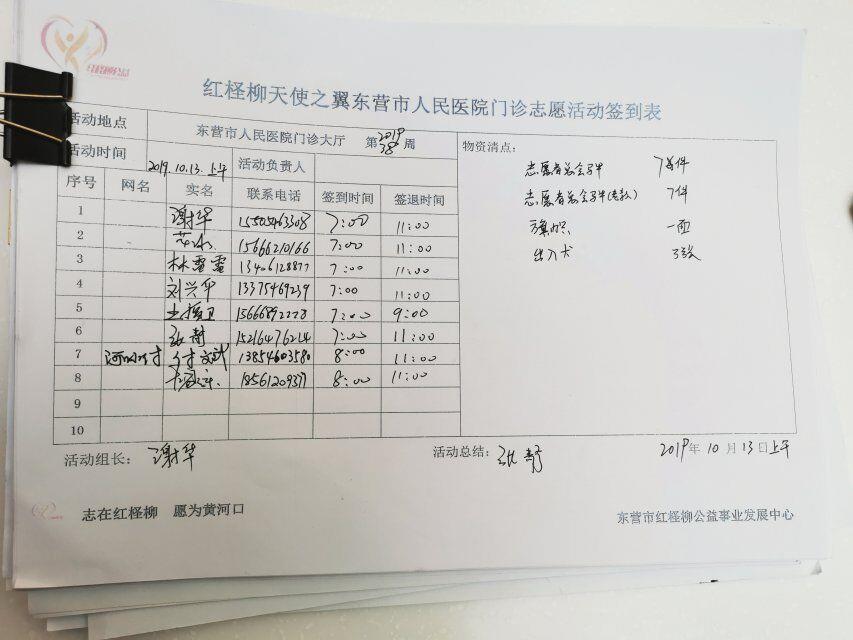 红柽柳天使之翼东营市人民医院门诊志愿活动签到表
活动地点 东营市人民医院门诊大厅 第2019 78周
物资清点:
活动时间 2019.10.13.上午 活动负责人
序号 网名 实名 联系电话 签到时间 签退时间
志愿者 7件
志愿者 7件
一面
出入卡 3张
1 谢华 15505463308 7:00 11:00
2 15666210166 7:00 11:00
3 林雪雪 13406128877 7:00 11:00
4 刘兴华 13375469239 7:00 11:00
5 15666892228 7:00 9:00
6 张静 15216476214 7:00 11:00
7 13854603580 8:00 11:00
8 18561209377 8:00 11:00
9
10
活动组长: 谢华 活动总结: 张静 2019年10月13日上午
志在红柽柳 愿为黄河口 东营市红柽柳公益事业发展中心